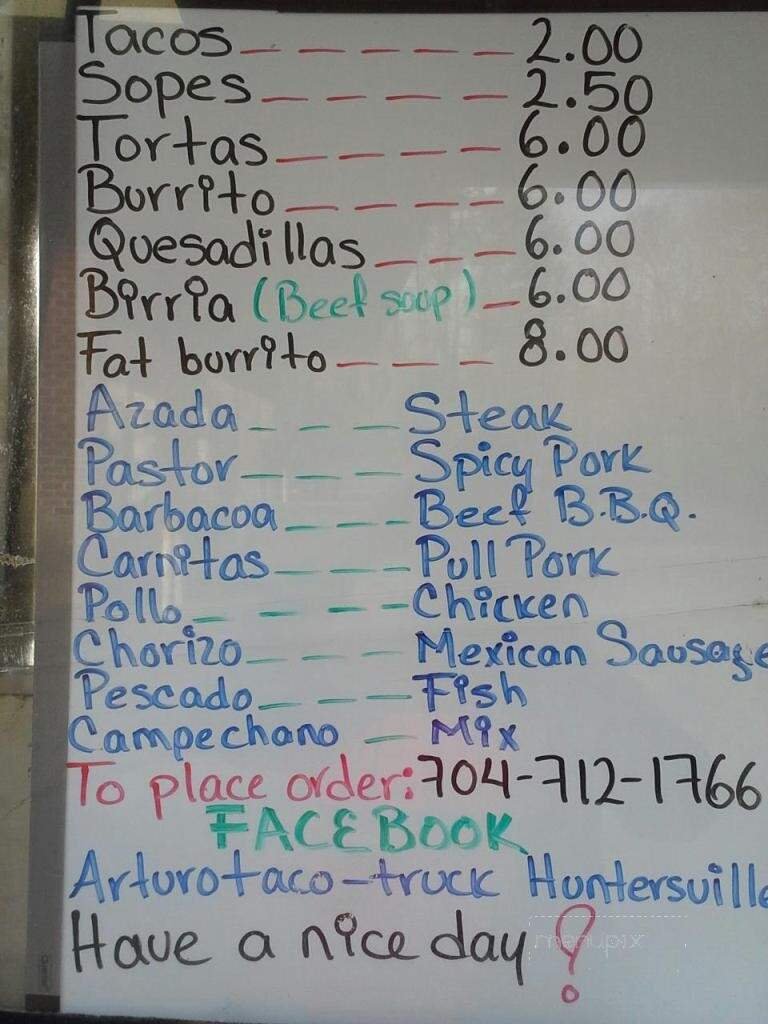 Tacos_ _ _ _ _ _ 2.00
Sopes_ _ _ _ _ 2.50
Tortas_ _ _ _ _ 6.00
Burrito_ _ _ _ _ 6.00
Quesadillas_ _ _ 6.00
Birria (Beef soup)_ 6.00
Fat burrito_ _ _ 8.00
Azada_ _ _ Steak
Pastor_ _ _ Spicy Pork
Barbacoa_ _ _ Beef B.B.Q.
Carnitas_ _ _ Pull Pork
Pollo_ _ _ _ Chicken
Chorizo_ _ _ Mexican Sausage
Pescado_ _ _ Fish
Campechano _ Mix
To place order: 704-712-1766
FACEBOOK
Arturotaco-truck Huntersville
Have a nice day ?
menupix